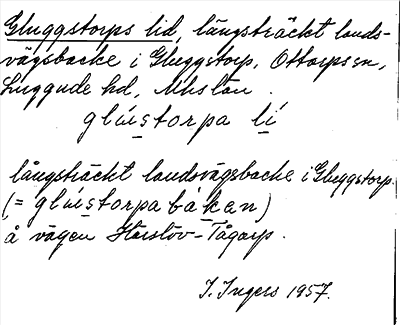 Gluggstorps lid, långsträckt lands-
vägsbacke i Gluggstorp, Ottarps sn,
Luggude hd, Mhslän.
glúistorpa lí
långsträckt landsvägsbacke i Gluggstorp.
(= glúistorpa bákan)
å vägen Härslöv-Tågarp.
I. Ingers 1957.